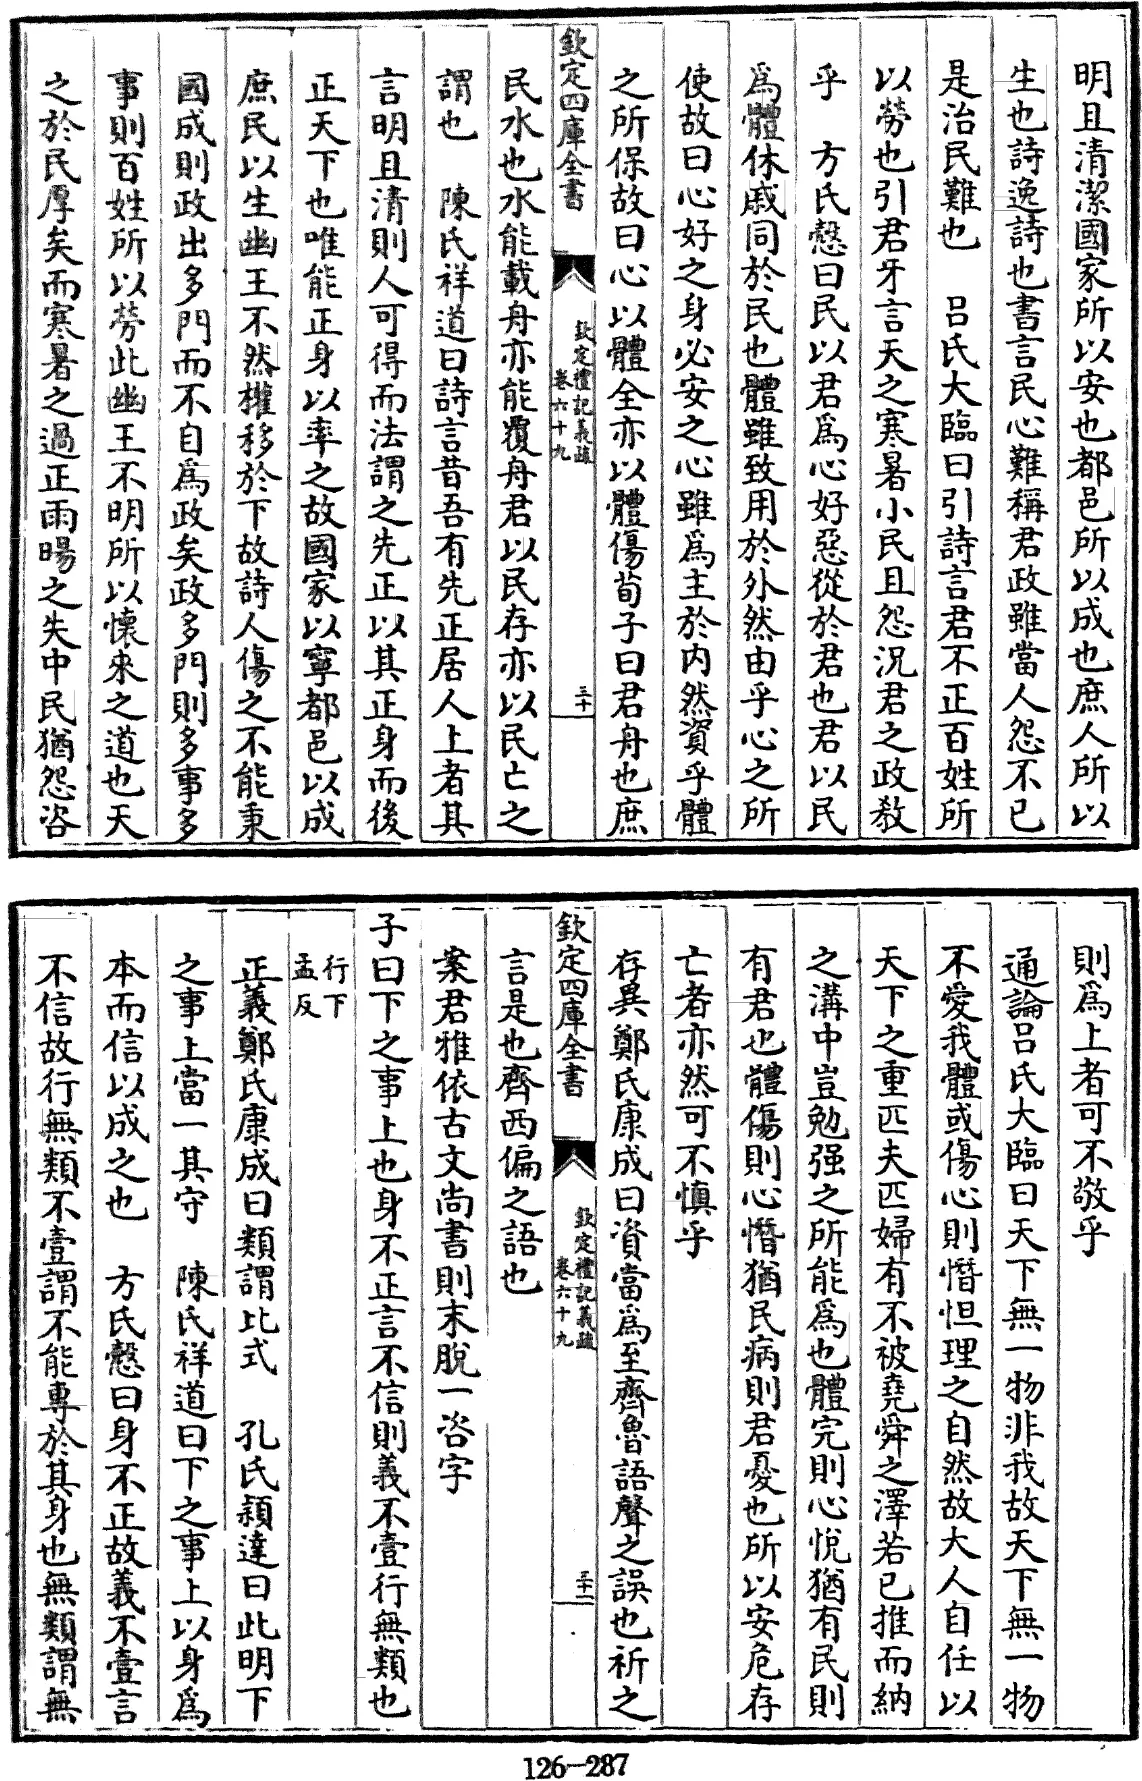 明且清潔國家所以安也都邑所以成也庶人所以
生也詩逸詩也書言民心難稱君政雖當人怨不已
是治民難也　呂氏大臨曰引詩言君不正百姓所
以勞也引君牙言天之寒暑小民且怨況君之政教
乎　方氏慤曰民以君爲心好惡從於君也君以民
爲體休戚同於民也體雖致用於外然由乎心之所
使故曰心好之身必安之心雖爲主於內然資乎體
之所保故曰心以體全亦以體傷荀子曰君舟也庶
欽定四庫全書
欽定禮記義疏
卷六十九
三十
民水也水能載舟亦能覆舟君以民存亦以民亡之
謂也　陳氏祥道曰詩言昔吾有先正居人上者其
言明且清則人可得而法謂之先正以其正身而後
正天下也唯能正身以率之故國家以寧都邑以成
庶民以生幽王不然權移於下故詩人傷之不能秉
國成則政出多門而不自爲政矣政多門則多事多
事則百姓所以勞此幽王不明所以懷來之道也天
之於民厚矣而寒暑之過正雨暘之失中民猶怨咨
則爲上者可不敬乎
通論呂氏大臨曰天下無一物非我故天下無一物
不愛我體或傷心則憯怛理之自然故大人自任以
天下之重匹夫匹婦有不被堯舜之澤若已推而納
之溝中豈勉强之所能爲也體完則心悅猶有民則
有君也體傷則心憯猶民病則君憂也所以安危存
亡者亦然可不慎乎
存異鄭氏康成曰資當爲至齊魯語聲之誤也祈之
欽定四庫全書
欽定禮記義疏
卷六十九
三十一
言是也齊西偏之語也
案君雅依古文尚書則末脫一咨字
子曰下之事上也身不正言不信則義不壹行無類也
行下
孟反
正義鄭氏康成曰類謂比式　孔氏穎達曰此明下
之事上當一其守　陳氏祥道曰下之事上以身爲
本而信以成之也　方氏慤曰身不正故義不壹言
不信故行無類不壹謂不能專於其身也無類謂無
126-287